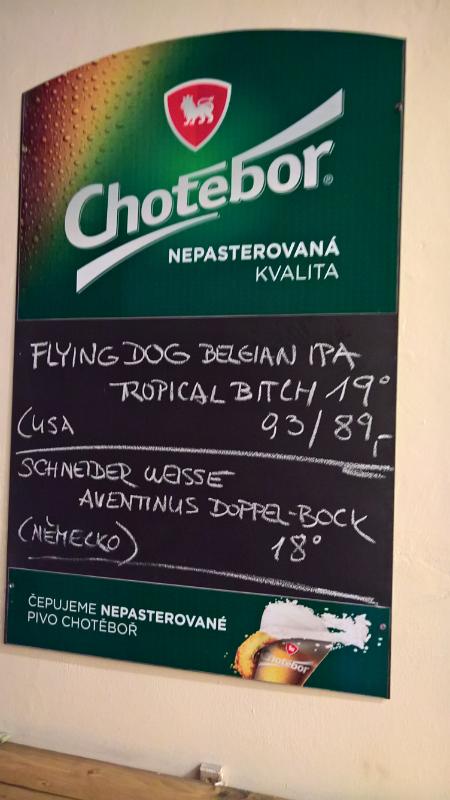 Chotebor®
NEPASTEROVANÁ
KVALITA
FLYING DOG BELGIAN IPA
TROPICAL BITCH 19°
(USA 93/89,-
SCHNEIDER WEISSE
AVENTINUS DOPPEL-BOCK
(NĚMECKO) 18°
ČEPUJEME NEPASTEROVANÉ
PIVO CHOTĚBOŘ
Chotebor